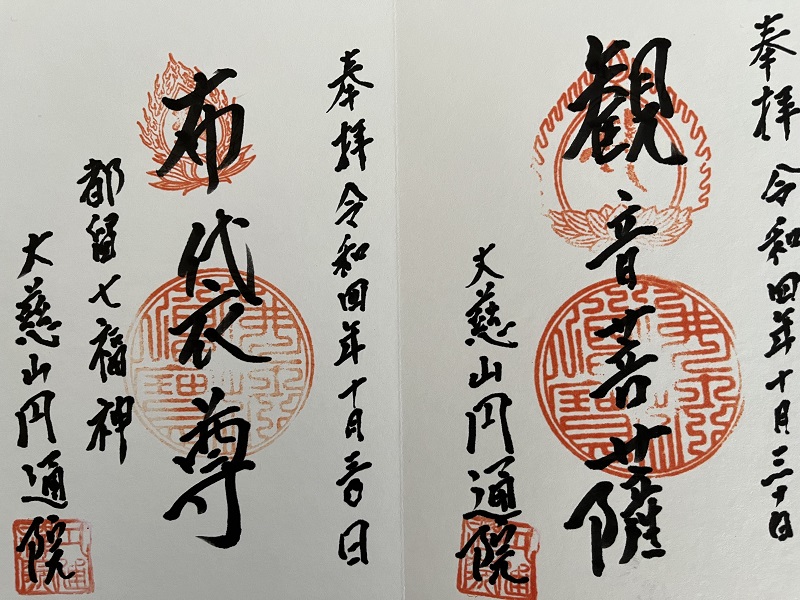 奉拝 令和四年十月三十日
観音菩薩
大慈山円通院
奉拝 令和四年十月三十日
布袋尊
都留七福神
大慈山円通院